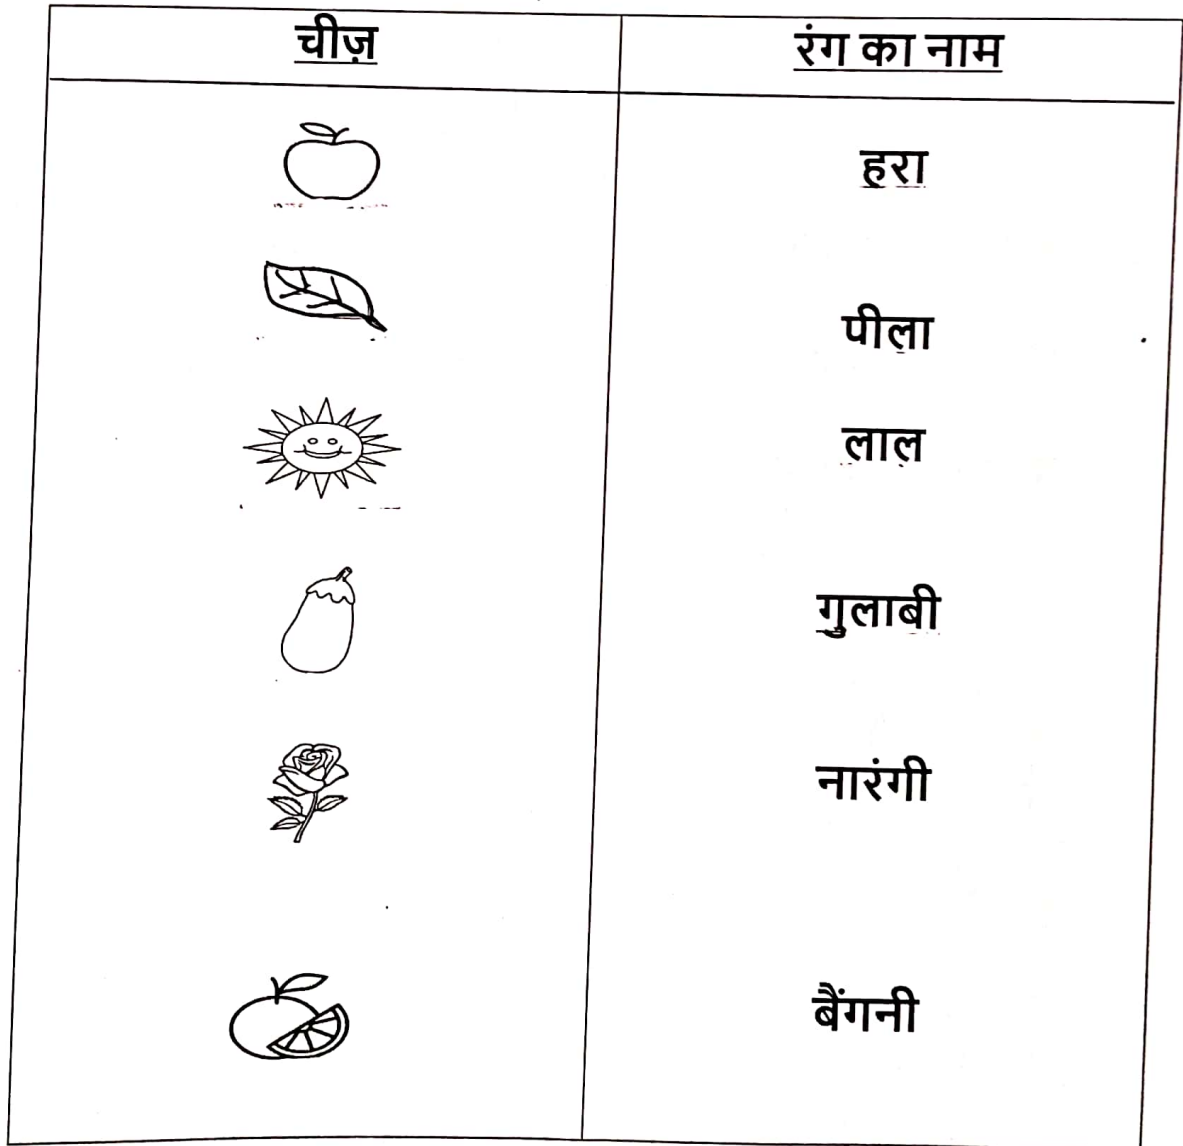 चीज़
रंग का नाम
हरा
पीला
लाल
गुलाबी
नारंगी
बैंगनी